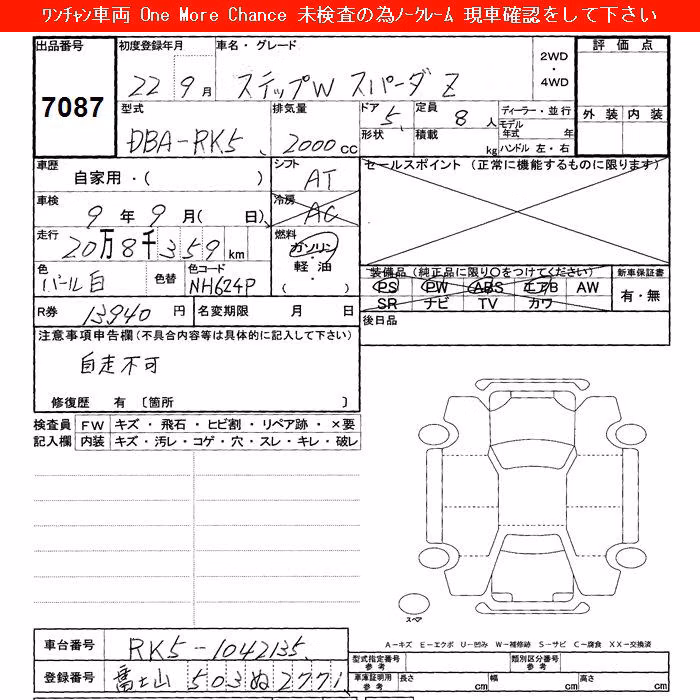 ﾜﾝﾁｬﾝ車両 One More Chance 未検査の為ﾉｰｸﾚｰﾑ 現車確認をして下さい
出品番号 初度登録年月 車名・グレード 2WD・4WD 評価点
7087 22 9月 ステップW スパーダ Z
型式 排気量 ドア 5 定員 8人 ディーラー・並行 外装 内装
DBA-RK5 2000cc 形状 積載 kg モデル年式 年 ハンドル 左・右
車歴 シフト セールスポイント (正常に機能するものに限ります)
自家用・( ) AT
車検 冷房
9年9月( 日) AC
走行 燃料
20万8千359km ガソリン・軽油・( )
色 色替 色コード 装備品(純正品に限り○をつけてください) 新車保証書
パール白 NH624P PS PW ABS エアB AW 有・無
SR ナビ TV カワ
R券 13940円 名変期限 月 日 後日品
注意事項申告欄(不具合内容等は具体的に記入して下さい)
自走不可
修復歴 有 〔箇所 〕
検査員 FW キズ・飛石・ヒビ割・リペア跡・×要
記入欄 内装 キズ・汚レ・コゲ・穴・スレ・キレ・破レ
スペア
A-キズ E-エクボ U-凹み W-補修跡 S-サビ C-腐食 XX-交換済
車台番号 RK5-1042135 型式指定番号 参考 類別区分番号 参考
登録番号 富士山 503 ぬ 2771 車庫証明用 参考 長さ cm 幅 cm 高さ cm